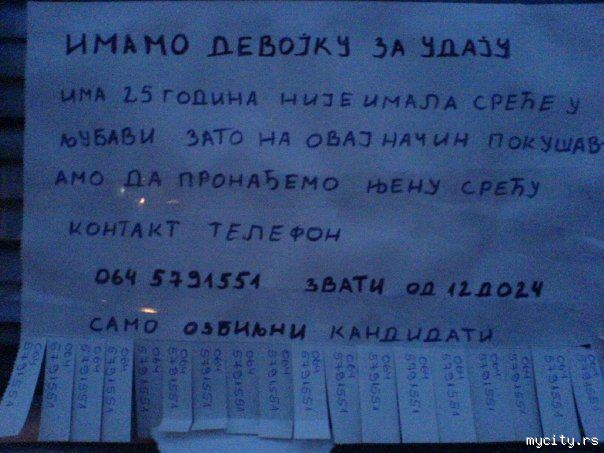 ИМАМО ДЕВОЈКУ ЗА УДАЈУ
ИМА 25 ГОДИНА НИЈЕ ИМАЛА СРЕЋЕ У
ЉУБАВИ ЗАТО НА ОВАЈ НАЧИН ПОКУШАВ-
АМО ДА ПРОНАЂЕМО ЊЕНУ СРЕЋУ
КОНТАКТ ТЕЛЕФОН
064 5791551 ЗВАТИ ОД 12 ДО 24
САМО ОЗБИЉНИ КАНДИДАТИ
064 5791551
064 5791551
064 5791551
064 5791551
064 5791551
064 5791551
064 5791551
064 5791551
064 5791551
064 5791551
064 5791551
064 5791551
064 5791551
064 5791551
064 5791551
064 5791551
064 5791551
064 5791551
mycity.rs